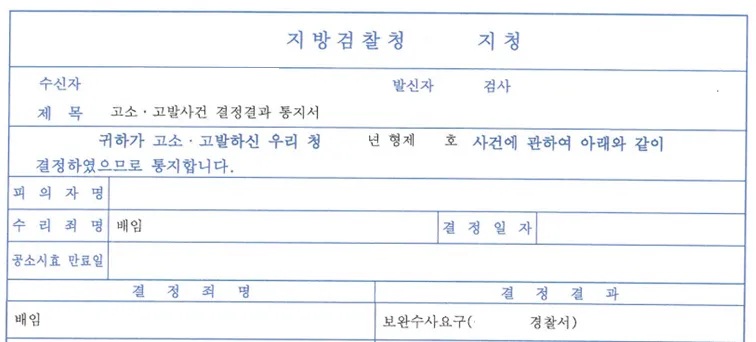 지방검찰청 지청
수신자 발신자 검사
제 목 고소·고발사건 결정결과 통지서
귀하가 고소·고발하신 우리 청 년 형제 호 사건에 관하여 아래와 같이
결정하였으므로 통지합니다.
피 의 자 명
수 리 죄 명 배임 결 정 일 자
공소시효 만료일
결 정 죄 명 결 정 결 과
배임 보완수사요구( 경찰서)